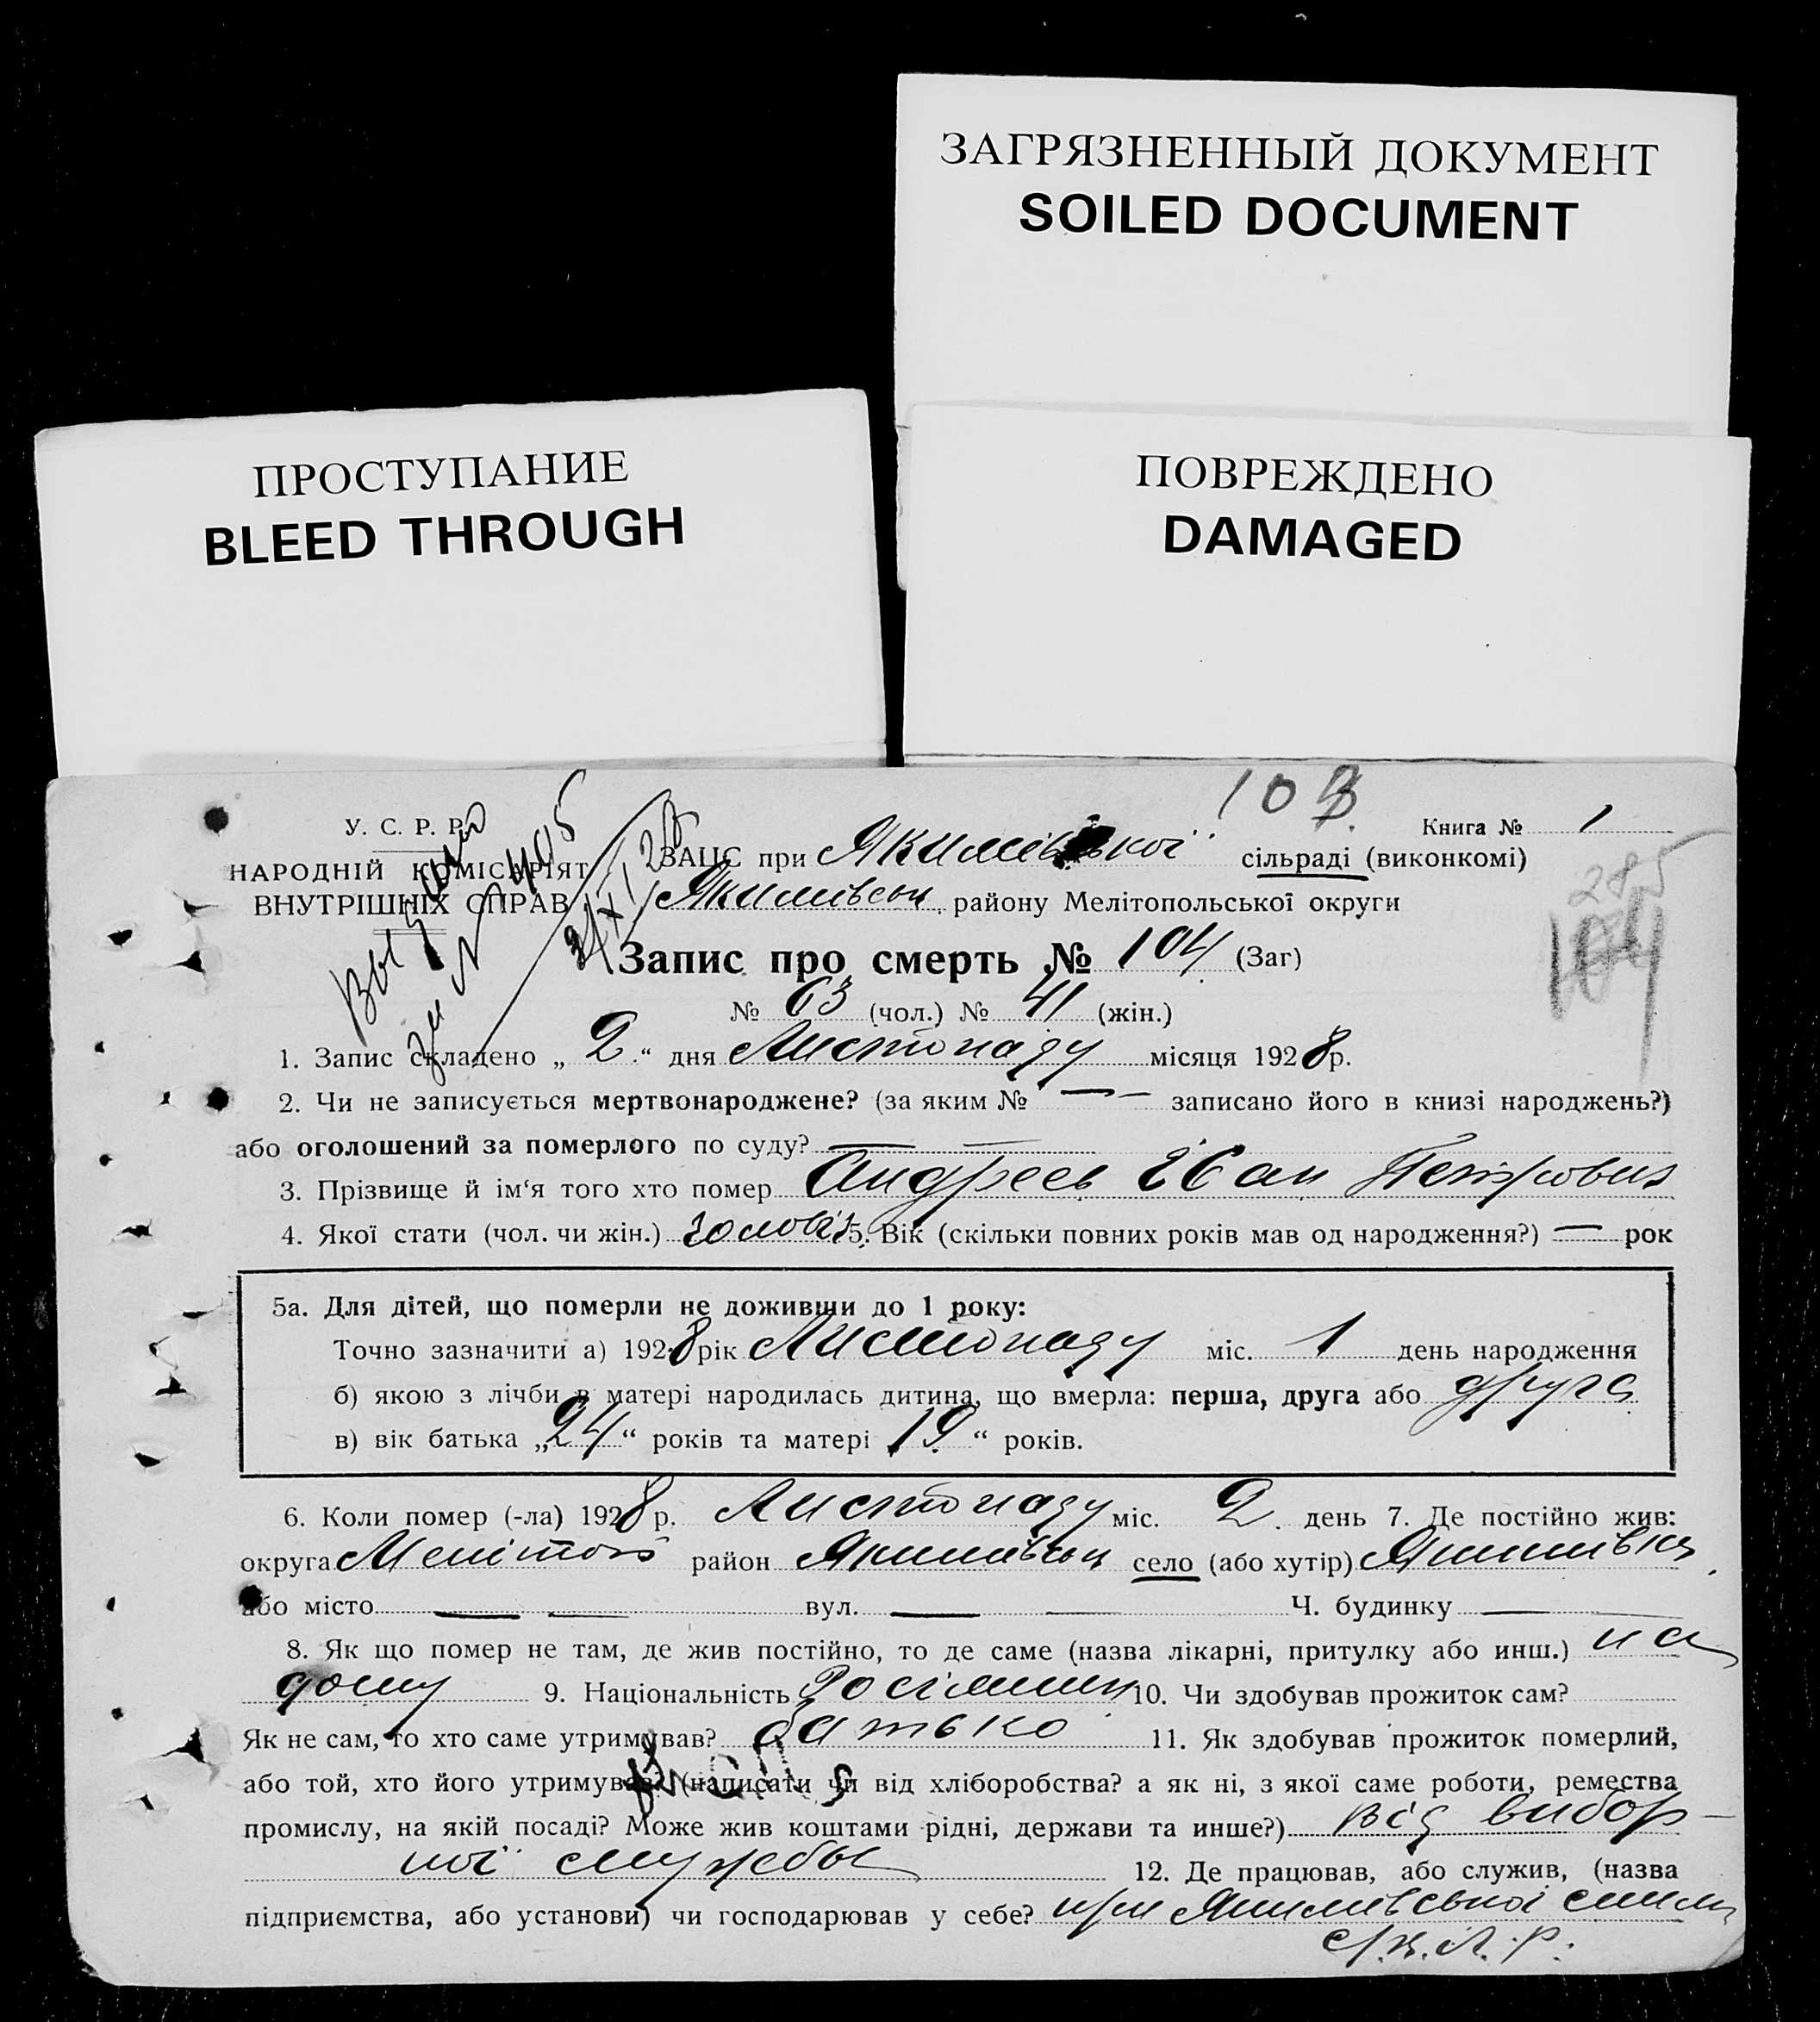 ЗАГРЯЗНЕННЫЙ ДОКУМЕНТ
SOILED DOCUMENT
ПРОСТУПАНИЕ
BLEED THROUGH
ПОВРЕЖДЕНО
DAMAGED
103
У. С. Р. Р.
НАРОДНІЙ КОМІСАРІЯТ
ВНУТРІШНІХ СПРАВ
Книга № 1
ЗАЦС при Якимівської сільраді (виконкомі)
Якимівськ району Мелітопольської округи
285
104
Запис про смерть № 104 (Заг)
№ 63 (чол.) № 41 (жін.)
1. Запис складено „ 2 “ дня Листопаду місяця 1928 р.
2. Чи не записується мертвонароджене? (за яким № — — записано його в книзі народжень?)
або оголошений за померлого по суду? — —
3. Прізвище й ім‘я того хто помер Андреев Иван Петрович
4. Якої стати (чол. чи жін.) чоловіч 5. Вік (скільки повних років мав од народження?) — рок
5а. Для дітей, що померли не доживши до 1 року:
Точно зазначити а) 1928 рік Листопаду міс. 1 день народження
б) якою з лічби в матері народилась дитина, що вмерла: перша, друга або друга
в) вік батька „24“ років та матері 19 “ років.
6. Коли помер (-ла) 1928 р. Листопаду міс. 2 день 7. Де постійно жив:
округа Мелітоп район Якимівськ село (або хутір) Якимівка
або місто — — вул. — — Ч. будинку —
8. Як що помер не там, де жив постійно, то де саме (назва лікарні, притулку або инш.) на
дому 9. Національність 10. Чи здобував прожиток сам?
Як не сам, то хто саме утримував? батько 11. Як здобував прожиток померлий,
або той, хто його утримував? (написати чи від хліборобства? а як ні, з якої саме роботи, ремества
промислу, на якій посаді? Може жив коштами рідні, держави та инше?) від вибор-
ної службы 12. Де працював, або служив, (назва
підприємства, або установи) чи господарював у себе? при Якимівської